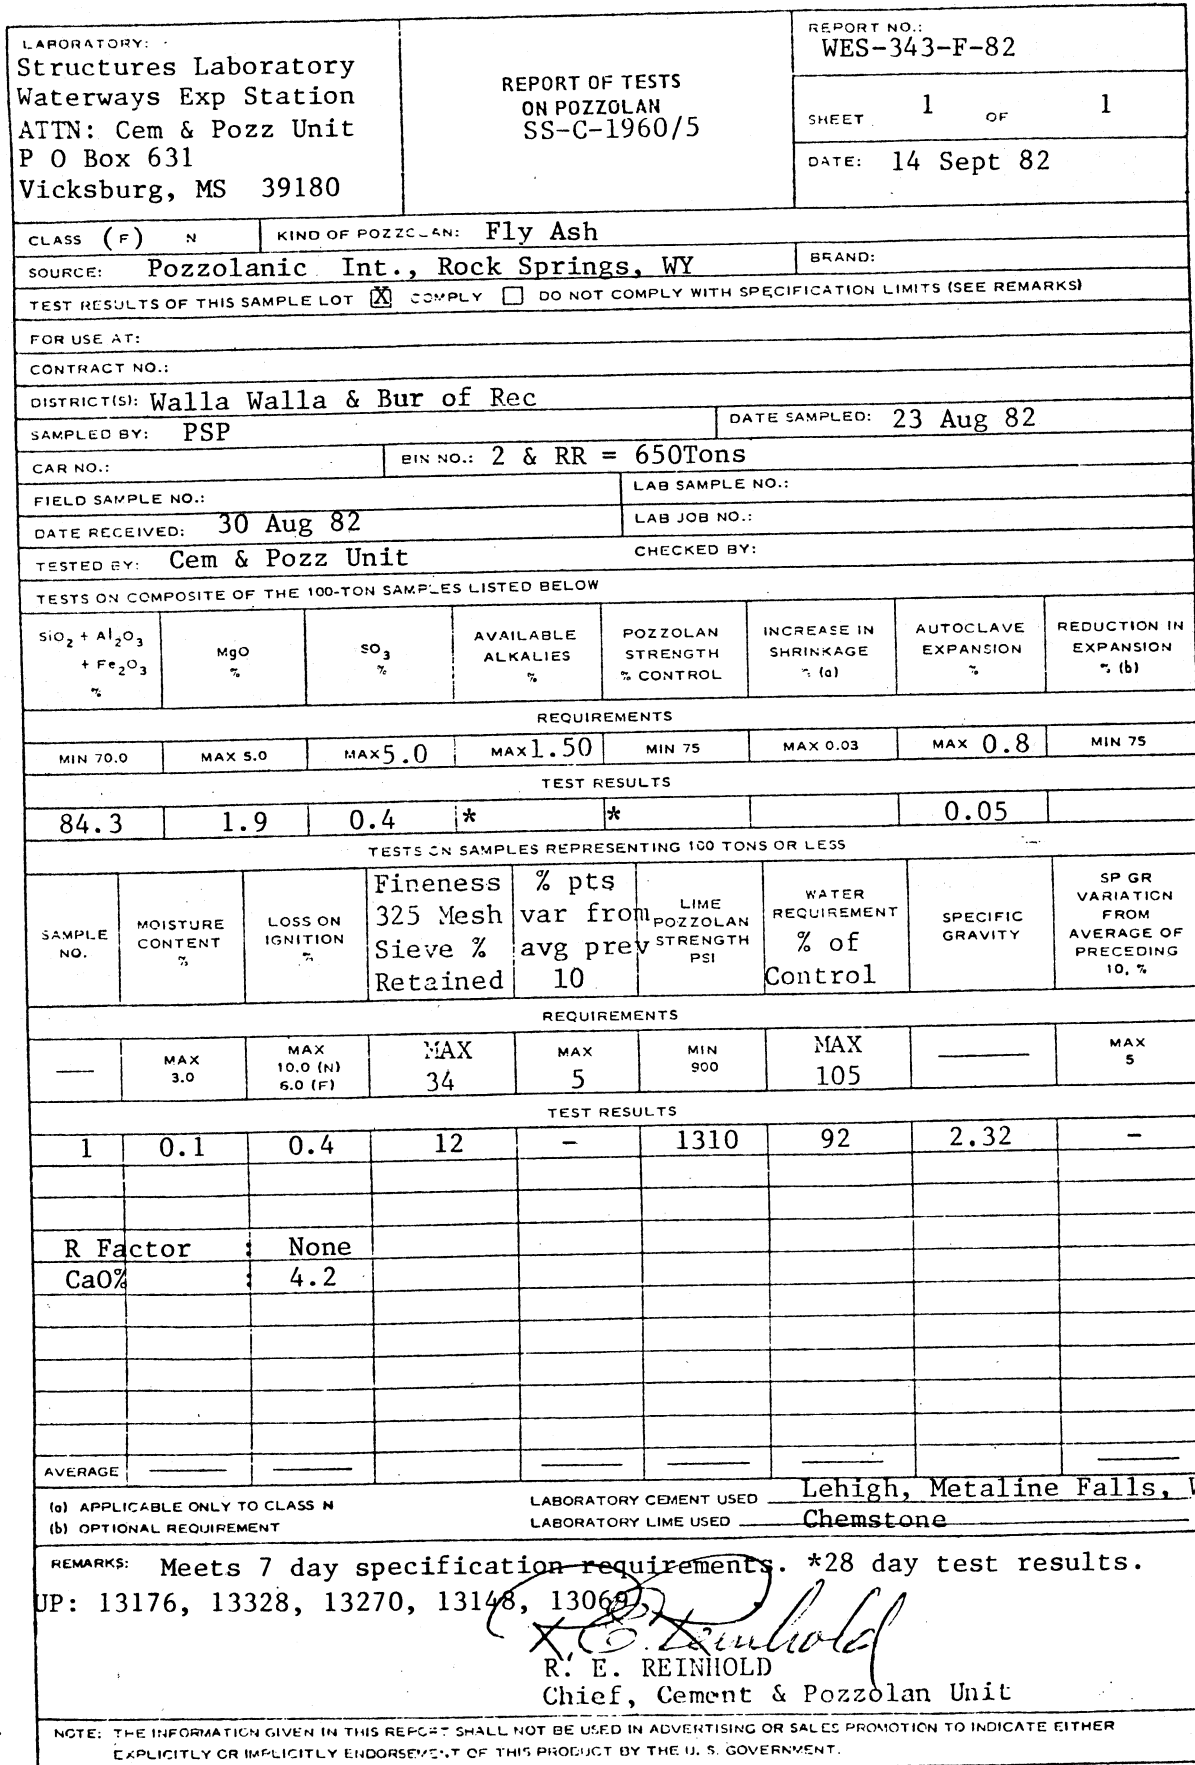 LABORATORY:
Structures Laboratory
Waterways Exp Station
ATTN: Cem & Pozz Unit
P O Box 631
Vicksburg, MS 39180
REPORT OF TESTS
ON POZZOLAN
SS-C-1960/5
REPORT NO.:
WES-343-F-82
SHEET 1 OF 1
DATE: 14 Sept 82
CLASS (F) N KIND OF POZZOLAN: Fly Ash
SOURCE: Pozzolanic Int., Rock Springs, WY BRAND:
TEST RESULTS OF THIS SAMPLE LOT [X] COMPLY [ ] DO NOT COMPLY WITH SPECIFICATION LIMITS (SEE REMARKS)
FOR USE AT:
CONTRACT NO.:
DISTRICT(S): Walla Walla & Bur of Rec
SAMPLED BY: PSP DATE SAMPLED: 23 Aug 82
CAR NO.: BIN NO.: 2 & RR = 650Tons
FIELD SAMPLE NO.: LAB SAMPLE NO.:
DATE RECEIVED: 30 Aug 82 LAB JOB NO.:
TESTED BY: Cem & Pozz Unit CHECKED BY:
TESTS ON COMPOSITE OF THE 100-TON SAMPLES LISTED BELOW
SiO2 + Al2O3
+ Fe2O3
%
MgO
%
SO3
%
AVAILABLE
ALKALIES
%
POZZOLAN
STRENGTH
% CONTROL
INCREASE IN
SHRINKAGE
% (a)
AUTOCLAVE
EXPANSION
%
REDUCTION IN
EXPANSION
% (b)
REQUIREMENTS
MIN 70.0 MAX 5.0 MAX 5.0 MAX 1.50 MIN 75 MAX 0.03 MAX 0.8 MIN 75
TEST RESULTS
84.3 1.9 0.4 * * 0.05
TESTS ON SAMPLES REPRESENTING 100 TONS OR LESS
SAMPLE
NO.
MOISTURE
CONTENT
%
LOSS ON
IGNITION
%
Fineness
325 Mesh
Sieve %
Retained
% pts
var from
avg prev
10
LIME
POZZOLAN
STRENGTH
PSI
WATER
REQUIREMENT
% of
Control
SPECIFIC
GRAVITY
SP GR
VARIATION
FROM
AVERAGE OF
PRECEDING
10, %
REQUIREMENTS
—
MAX
3.0
MAX
10.0 (N)
6.0 (F)
MAX
34
MAX
5
MIN
900
MAX
105
—
MAX
5
TEST RESULTS
1 0.1 0.4 12 - 1310 92 2.32 -
R Factor : None
CaO% : 4.2
AVERAGE — — — — — —
(a) APPLICABLE ONLY TO CLASS N LABORATORY CEMENT USED Lehigh, Metaline Falls, W
(b) OPTIONAL REQUIREMENT LABORATORY LIME USED Chemstone
REMARKS: Meets 7 day specification requirements. *28 day test results.
UP: 13176, 13328, 13270, 13148, 13069
R. E. Reinhold
R. E. REINHOLD
Chief, Cement & Pozzolan Unit
NOTE: THE INFORMATION GIVEN IN THIS REPORT SHALL NOT BE USED IN ADVERTISING OR SALES PROMOTION TO INDICATE EITHER
EXPLICITLY OR IMPLICITLY ENDORSEMENT OF THIS PRODUCT BY THE U. S. GOVERNMENT.